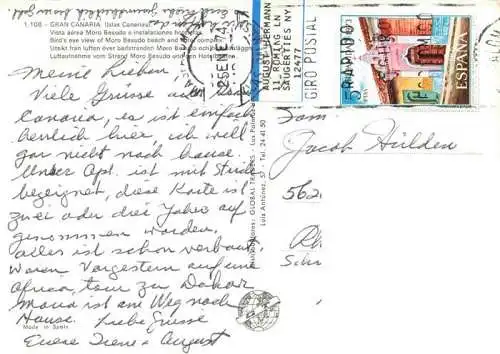 1.108 - GRAN CANARIA (Islas Canarias)
Vista aérea Moro Besudo e instalaciones hoteleras
Bird's eye view of Moro Besudo beach and hotel complex
Utsikt från luften över badstranden Moro Besudo
Luftaufnahme vom Strand Moro Besudo und der Hotelanlagen
Meine Lieben,
Viele Grüsse aus Gran
Canaria, es ist einfach
herrlich hier ich will
gar nicht nach hause.
Unser Apt. ist mit Strich
bezeignet, diese Karte ist
zwei oder drei Jahre auf
genommen worden,
alles ist schon verbaut,
waren Vorgestern auf eine
Africa tour zu Dakar
Maria ist am Weg nach
Hause. Liebe Grüsse
Euere Irene + August
Made in Spain
GLOBAL TRADERS - Las Palmas
Luis Antúnez, 57 - Tel. 24 41 50
25 ENE 74
AUGUST HERMANN
11 ROMING LN
SAUGERTIES NY
12477
GIRO POSTAL
RAPIDO
5 PTAS
ESPAÑA
Fam
Jacob Hülden
562
Rh
Schr